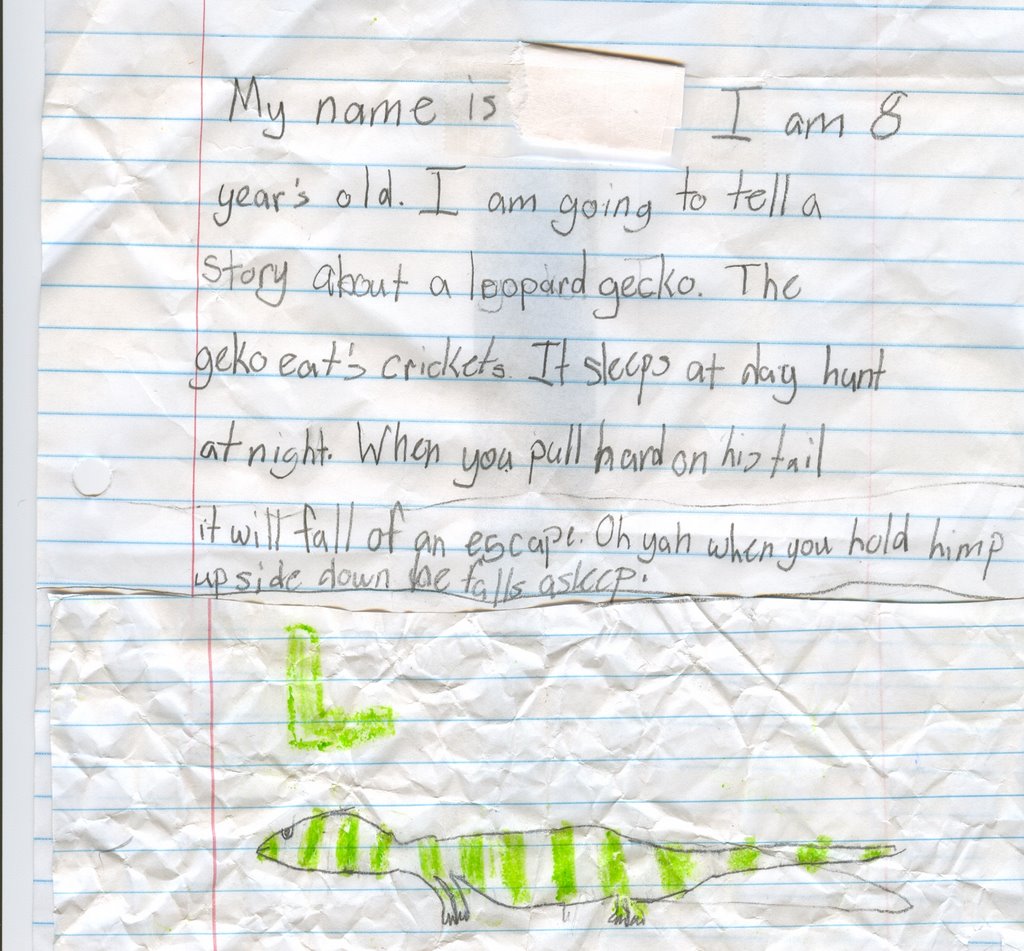 My name is I am 8
year's old. I am going to tell a
story about a leopard gecko. The
geko eat's crickets. It sleeps at day hunt
at night. When you pull hard on his tail
it will fall of an escape. Oh yah when you hold himp
up side down he falls asleep.
L